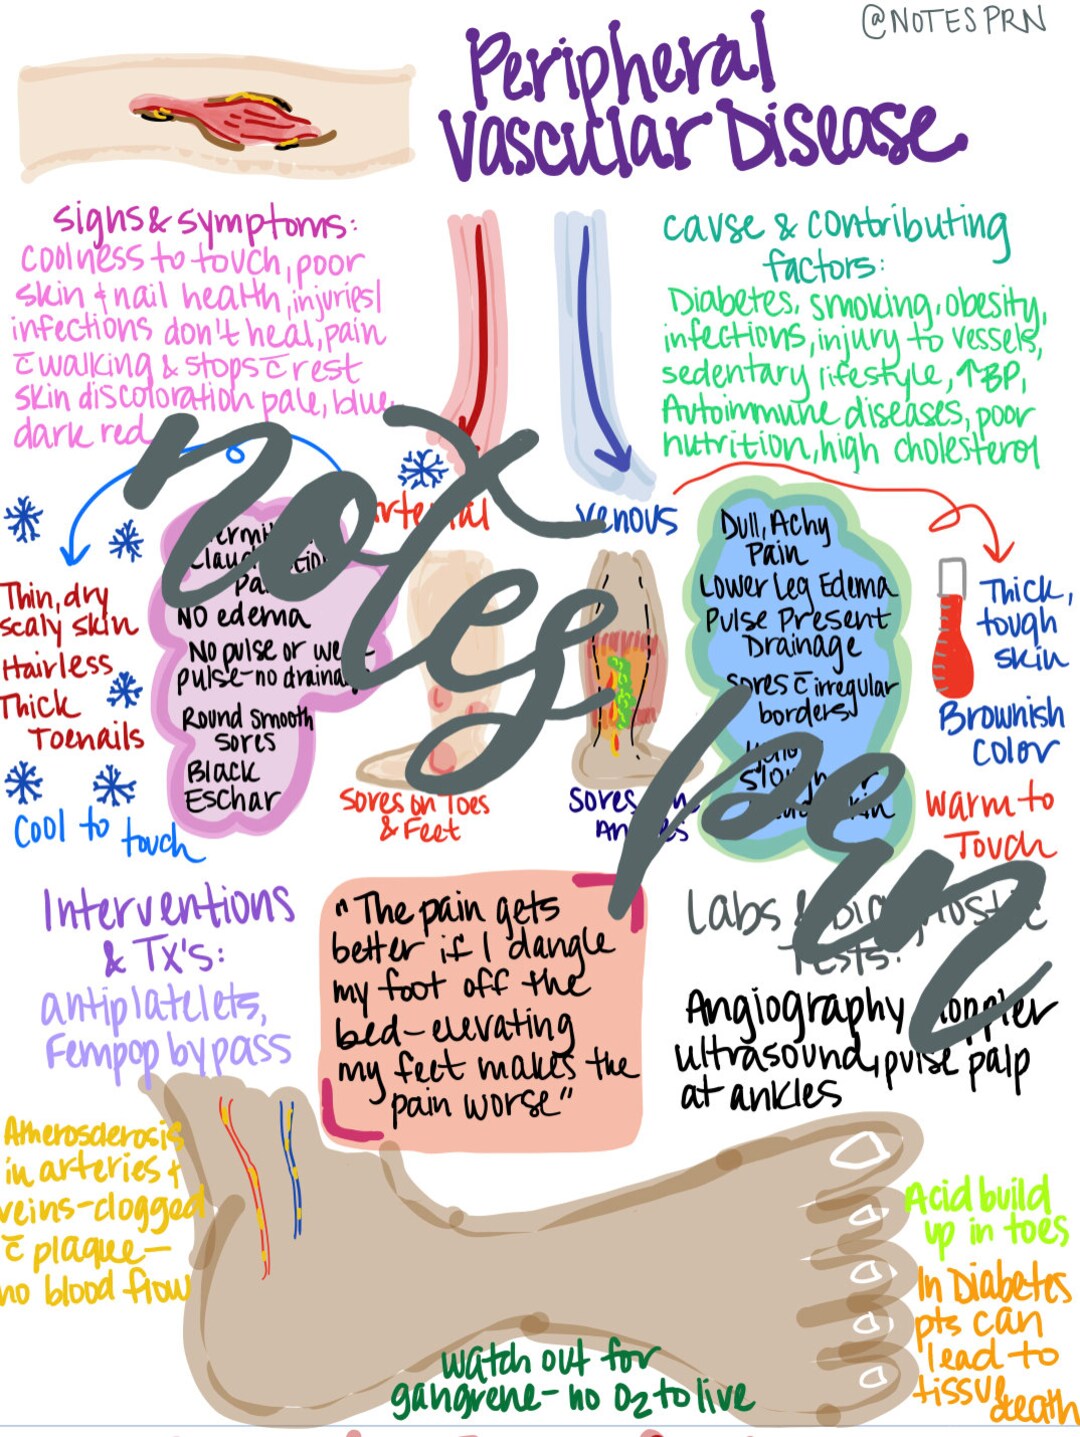 @NOTESPRN
Peripheral
Vascular Disease
signs & symptoms:
coolness to touch, poor
skin & nail health, injuries/
infections don't heal, pain
c̄ walking & stops c̄ rest
skin discoloration pale, blue,
dark red
cause & contributing
factors:
Diabetes, smoking, obesity,
infections, injury to vessels,
sedentary lifestyle, ↑BP,
Autoimmune diseases, poor
nutrition, high cholesterol
Arterial
venous
Thin, dry
scaly skin
Hairless
Thick
Toenails
Cool to touch
NO edema
No pulse or
pulse-no
Round smooth
sores
Black
Eschar
Sores on Toes
& Feet
Sores
Ankles
Dull, Achy
Pain
Lower Leg Edema
Pulse Present
Drainage
sores c̄ irregular
borders
Thick,
tough
skin
Brownish
Color
warm to
Touch
notes prn
Interventions
& Tx's:
antiplatelets,
Fempop bypass
"The pain gets
better if I dangle
my foot off the
bed-elevating
my feet makes the
pain worse"
Labs & Diagnostic
Tests:
Angiography, Doppler
ultrasound, pulse palp
at ankles
Atherosclerosis
in arteries &
veins-clogged
c̄ plaque-
no blood flow
Acid build
up in toes
In Diabetes
pts can
lead to
tissue
death
watch out for
gangrene-no O₂ to live